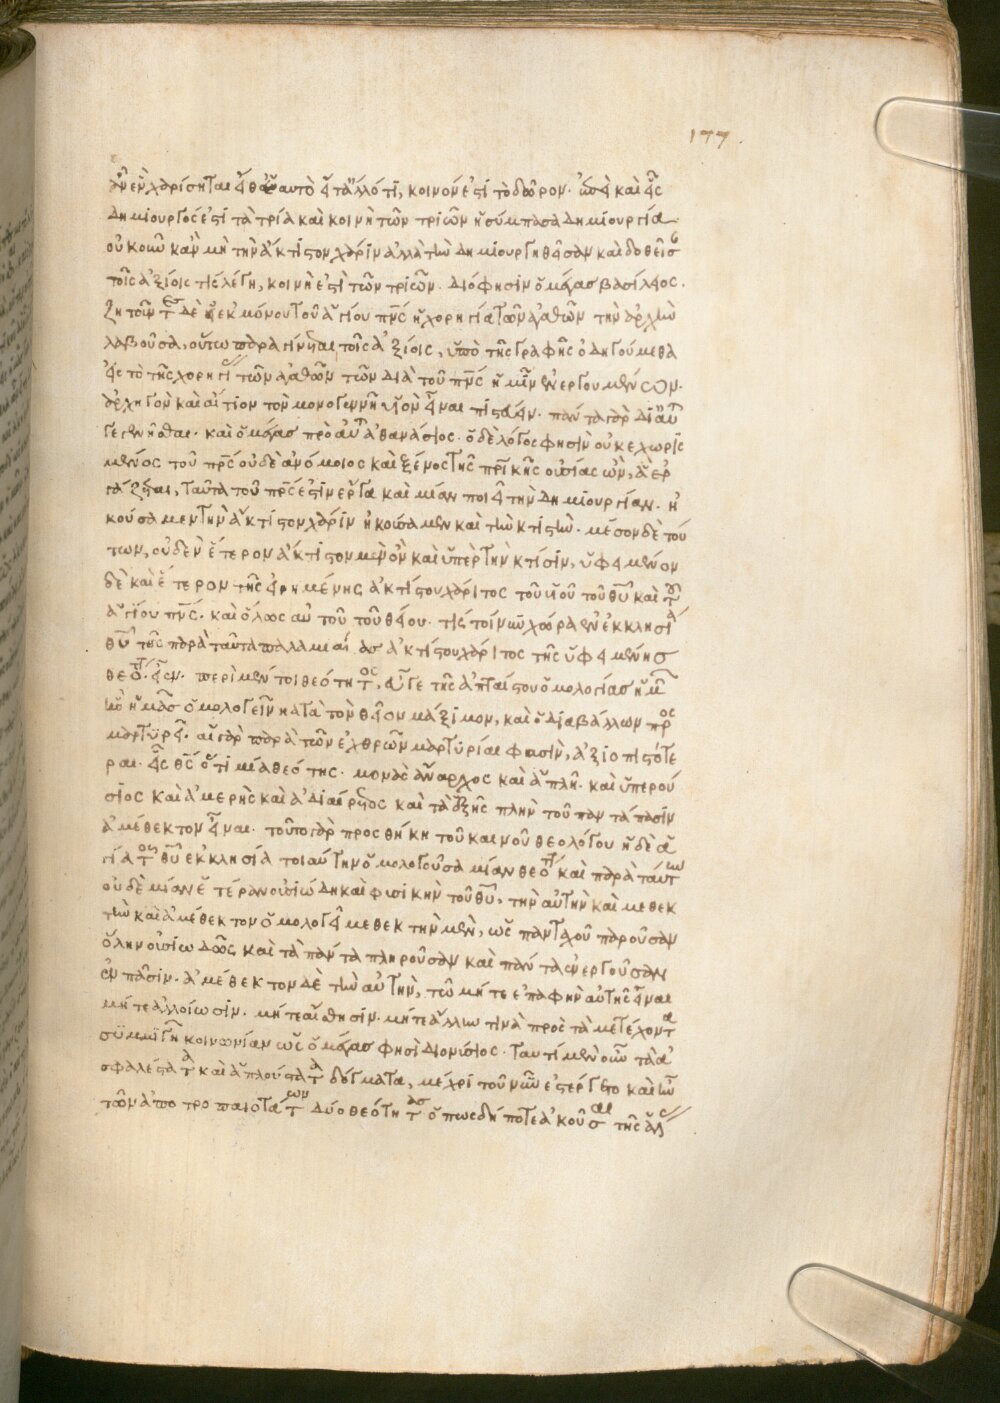 177
χαρίσηται αὐτὸ κοινόν ἐστι τὸ δῶρον. καὶ εἷς
δημιουργός ἐστι τὰ τρία καὶ κοινὴ τῶν τριῶν ἡ σύμπασα δημιουργία
οὐκοῦν κἂν μὴ τὴν ἄκτιστον χάριν ἀλλὰ τὴν δημιουργηθεῖσαν καὶ δοθεῖσ
τοῖς ἀξίοις τίς λέγῃ, κοινή ἐστι τῶν τριῶν. διό φησιν ὁ μέγας βασίλειος.
ζητοῦντες δὲ εἰ ἐκ μόνου τοῦ ἁγίου πνς ἡ χορηγία τῶν ἀγαθῶν τὴν ἀρχὴν
λαβοῦσα, οὕτω παραγίνεται τοῖς ἀξίοις, ὑπὸ τῆς γραφῆς ὁδηγούμεθα
εἰς τὸ τῆς χορηγί τῶν ἀγαθῶν τῶν διὰ τοῦ πνς ἡμῖν ἐνεργουμένων.
ἀρχηγὸν καὶ αἴτιον τὸν μονογενῆ υἱὸν εἶναι πιστεύειν. πάντα γὰρ δι' αὐτ
γεγενῆσθαι. καὶ ὁ μέγας πρὸ αὐτ ἀθανάσιος. ὁ δὲ λόγος φησὶν οὐ κεχωρισ
μένος τοῦ πρς οὐδὲ ἀνόμοιος καὶ ξένος τῆς πρικῆς οὐσίας ὤν, ἃ ἐρ
γάζεται, ταῦτα τοῦ πρς ἐστιν ἔργα καὶ μίαν ποιεῖ τὴν δημιουργίαν. ἠ
κούσαμεν τὴν ἄκτιστον χάριν ἠκούσαμεν καὶ τὴν κτιστήν. μέσον δὲ τού
των, οὐδὲν ἕτερον ἄκτιστον μὲν ὂν καὶ ὑπὲρ τὴν κτίσιν, ὑφειμένον
δὲ καὶ ἕτερον τῆς εἰρημένης ἀκτίστου χάριτος τοῦ υἱοῦ τοῦ θυ καὶ τοῦ
ἁγίου πνς. καὶ ὅλως αὐτοῦ τοῦ θείου. τίς τοίνυν χώρα ἐν ἐκκλησίᾳ
θυ τῆς παρὰ ταῦτα παλαμ ἀκτίστου χάριτος τῆς ὑφειμένησ
θεό. περὶ μέν τοι θεότητος, εἴγε τῆς ἀπταίστου ὁμολογίας ἡμ
ἣν ἡμᾶς ὁμολογεῖν κατὰ τὸν θεῖον μάξιμον, καὶ ὁ διαβάλλων πρ
μαρτυρεῖ. αἱ γὰρ παρὰ τῶν ἐχθρῶν μαρτυρίαι φασὶν, ἀξιοπιστότε
ραι. εἷς θς ὅτι μία θεότης. μονὰς ἄναρχος καὶ ἁπλῆ. καὶ ὑπερού
σιος καὶ ἀμερὴς καὶ ἀδιαίρετος καὶ τὰ ἑξῆς πλὴν τοῦ παντάπασιν
ἀμέθεκτον εἶναι. τοῦτο γὰρ προσθήκη τοῦ καινοῦ θεολόγου ἡ δὲ ἁ
γία τοῦ θυ ἐκκλησία τοιαύτην ὁμολογοῦσα μίαν θεό καὶ παρὰ ταύτην
οὐδὲ μίαν ἑτέραν οὐσιώδη καὶ φυσικὴν τοῦ θυ, τὴν αὐτὴν καὶ μεθεκ
τὴν καὶ ἀμέθεκτον ὁμολογεῖ μεθεκτὴν μὲν, ὡς πανταχοῦ παροῦσαν
ὅλην οὐσιωδῶς καὶ τὰ πάντα πληροῦσαν καὶ πάντα ἐνεργοῦσαν
ἐν πᾶσιν. ἀμέθεκτον δὲ τὴν αὐτήν, τῷ μήτε ἐπαφὴν αὐτῆς εἶναι
μήτε ἀλλοίωσιν. μήτε αἴσθησιν. μήτε ἄλλην τινὰ πρὸς τὰ μετέχοντα
συμμιγῆ κοινωνίαν ὡς ὁ μέγας φησὶ διονύσιος. ταυτὶ μὲν οὖν τὰ ἀ
σφαλέστατα καὶ ἁπλούστατα δόγματα, μέχρι τοῦ νῦν ἐστέργετο καὶ
τῶν ἀποτροπαιοτάτων δύο θεότητας ὁπωσδήποτε ἀκοῦσαι τῆς